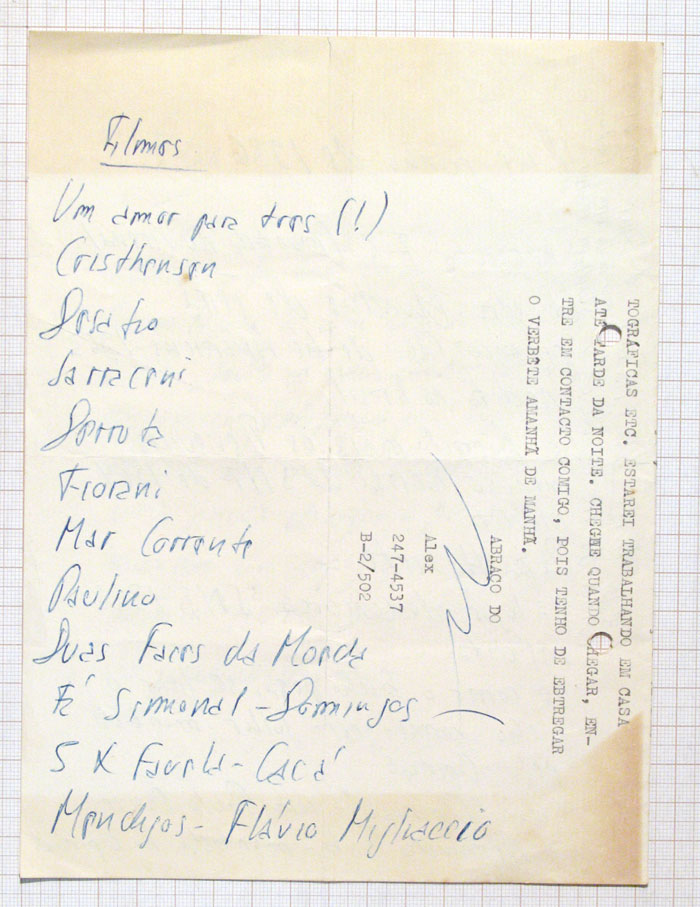 Filmes
Um amor para tres (!)
Cristhensen
Desafio
Sarraceni
Derrota
Fiorani
Mar Corrente
Paulino
Duas Faces da Moeda
É Simonal - Domingos
5 X Favela - Cacá
Mendigos - Flávio Migliaccio
TOGRÁFICAS ETC. ESTAREI TRABALHANDO EM CASA
ATÉ TARDE DA NOITE. CHEGNE QUANDO CHEGAR, EN-
TRE EM CONTACTO COMIGO, POIS TENHO DE EBTREGAR
O VERBÊTE AMANHÃ DE MANHÃ.
ABRAÇO DO
Alex
247-4537
B-2/502